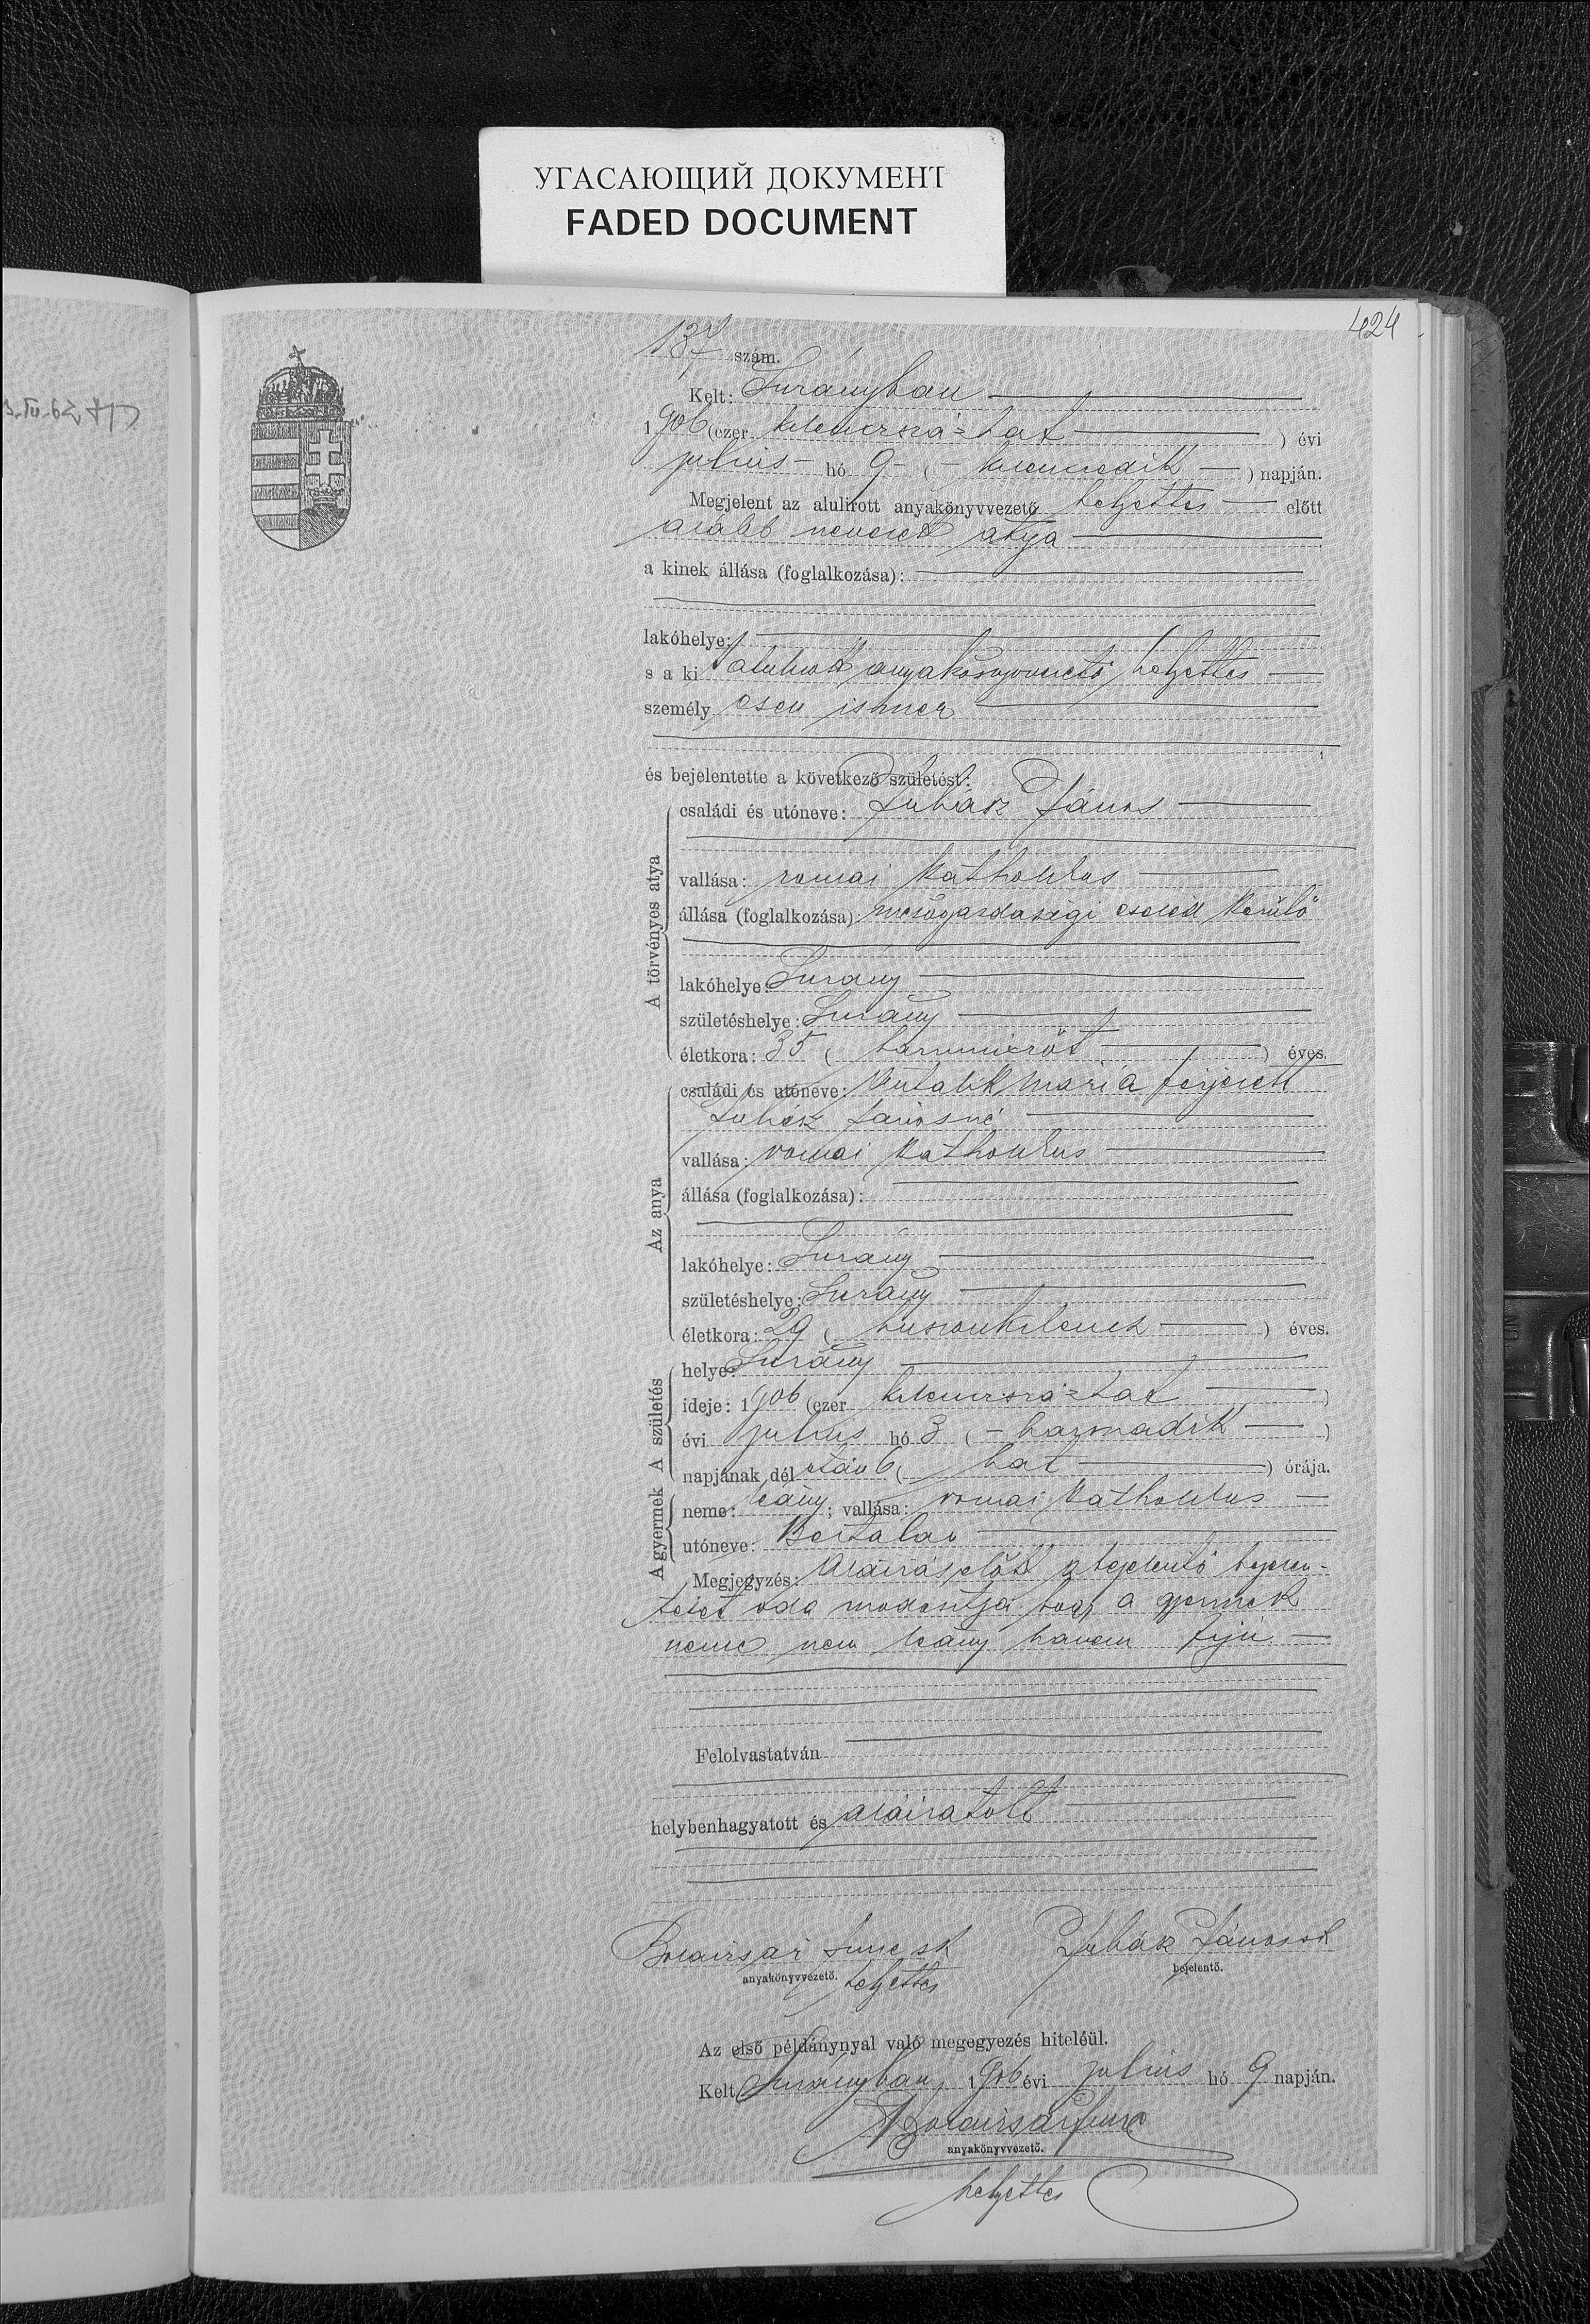 УГАСАЮЩИЙ ДОКУМЕНТ
FADED DOCUMENT
424
137 szám.
Kelt: Surányban
1906 (ezer kilencszáz-hat ) évi
julius hó 9 ( kilencedik ) napján.
Megjelent az alulirott anyakönyvvezető helyettes előtt
alább nevezett atya
a kinek állása (foglalkozása):
lakóhelye:
s a ki alulirott anyakönyvvezető helyettes
személy esen ismer
és bejelentette a következő születést:
A törvényes atya
családi és utóneve: Juhász János
vallása: romai katholikus
állása (foglalkozása): mezőgazdasági cseléd kerülő
lakóhelye: Surány
születéshelye: Surány
életkora: 35 ( harmincöt ) éves.
Az anya
családi és utóneve: Mária férjezett
Juhász Jánosné
vallása: romai katholikus
állása (foglalkozása):
lakóhelye: Surány
születéshelye: Surány
életkora: 29 ( huszonkilencz ) éves.
A születés
helye: Surány
ideje: 1906 (ezer kilencszáz-hat )
évi julius hó 3 ( harmadik )
napjának dél után 6 ( hat ) órája.
A gyermek
neme: leány; vallása: romai katholikus
utóneve: Bertalan
Megjegyzés: Aláirás előtt a bejelentő bejelen-
tését oda modositja hogy a gyermek
neme nem leány hanem fiju
Felolvastatván
helybenhagyatott és aláiratott
sk Juhász János sk
anyakönyvvezető. helyettes bejelentő.
Az első példánynyal való megegyezés hiteléül.
Kelt Surányban, 1906 évi julius hó 9 napján.
anyakönyvvezető.
helyettes